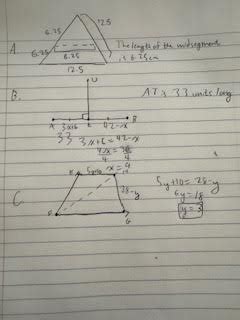 6.25
12.5
A.
6.25
6.25
The length of the midsegment
is 6.25cm
12.5
U
B.
AT is 33 units long
A 3x+6 E 42-x B
33 3x+6 = 42-x
4x = 36
4 4
x = 9
C
5y+10
28-y
5y+10 = 28-y
6y = 18
y = 3
F
G